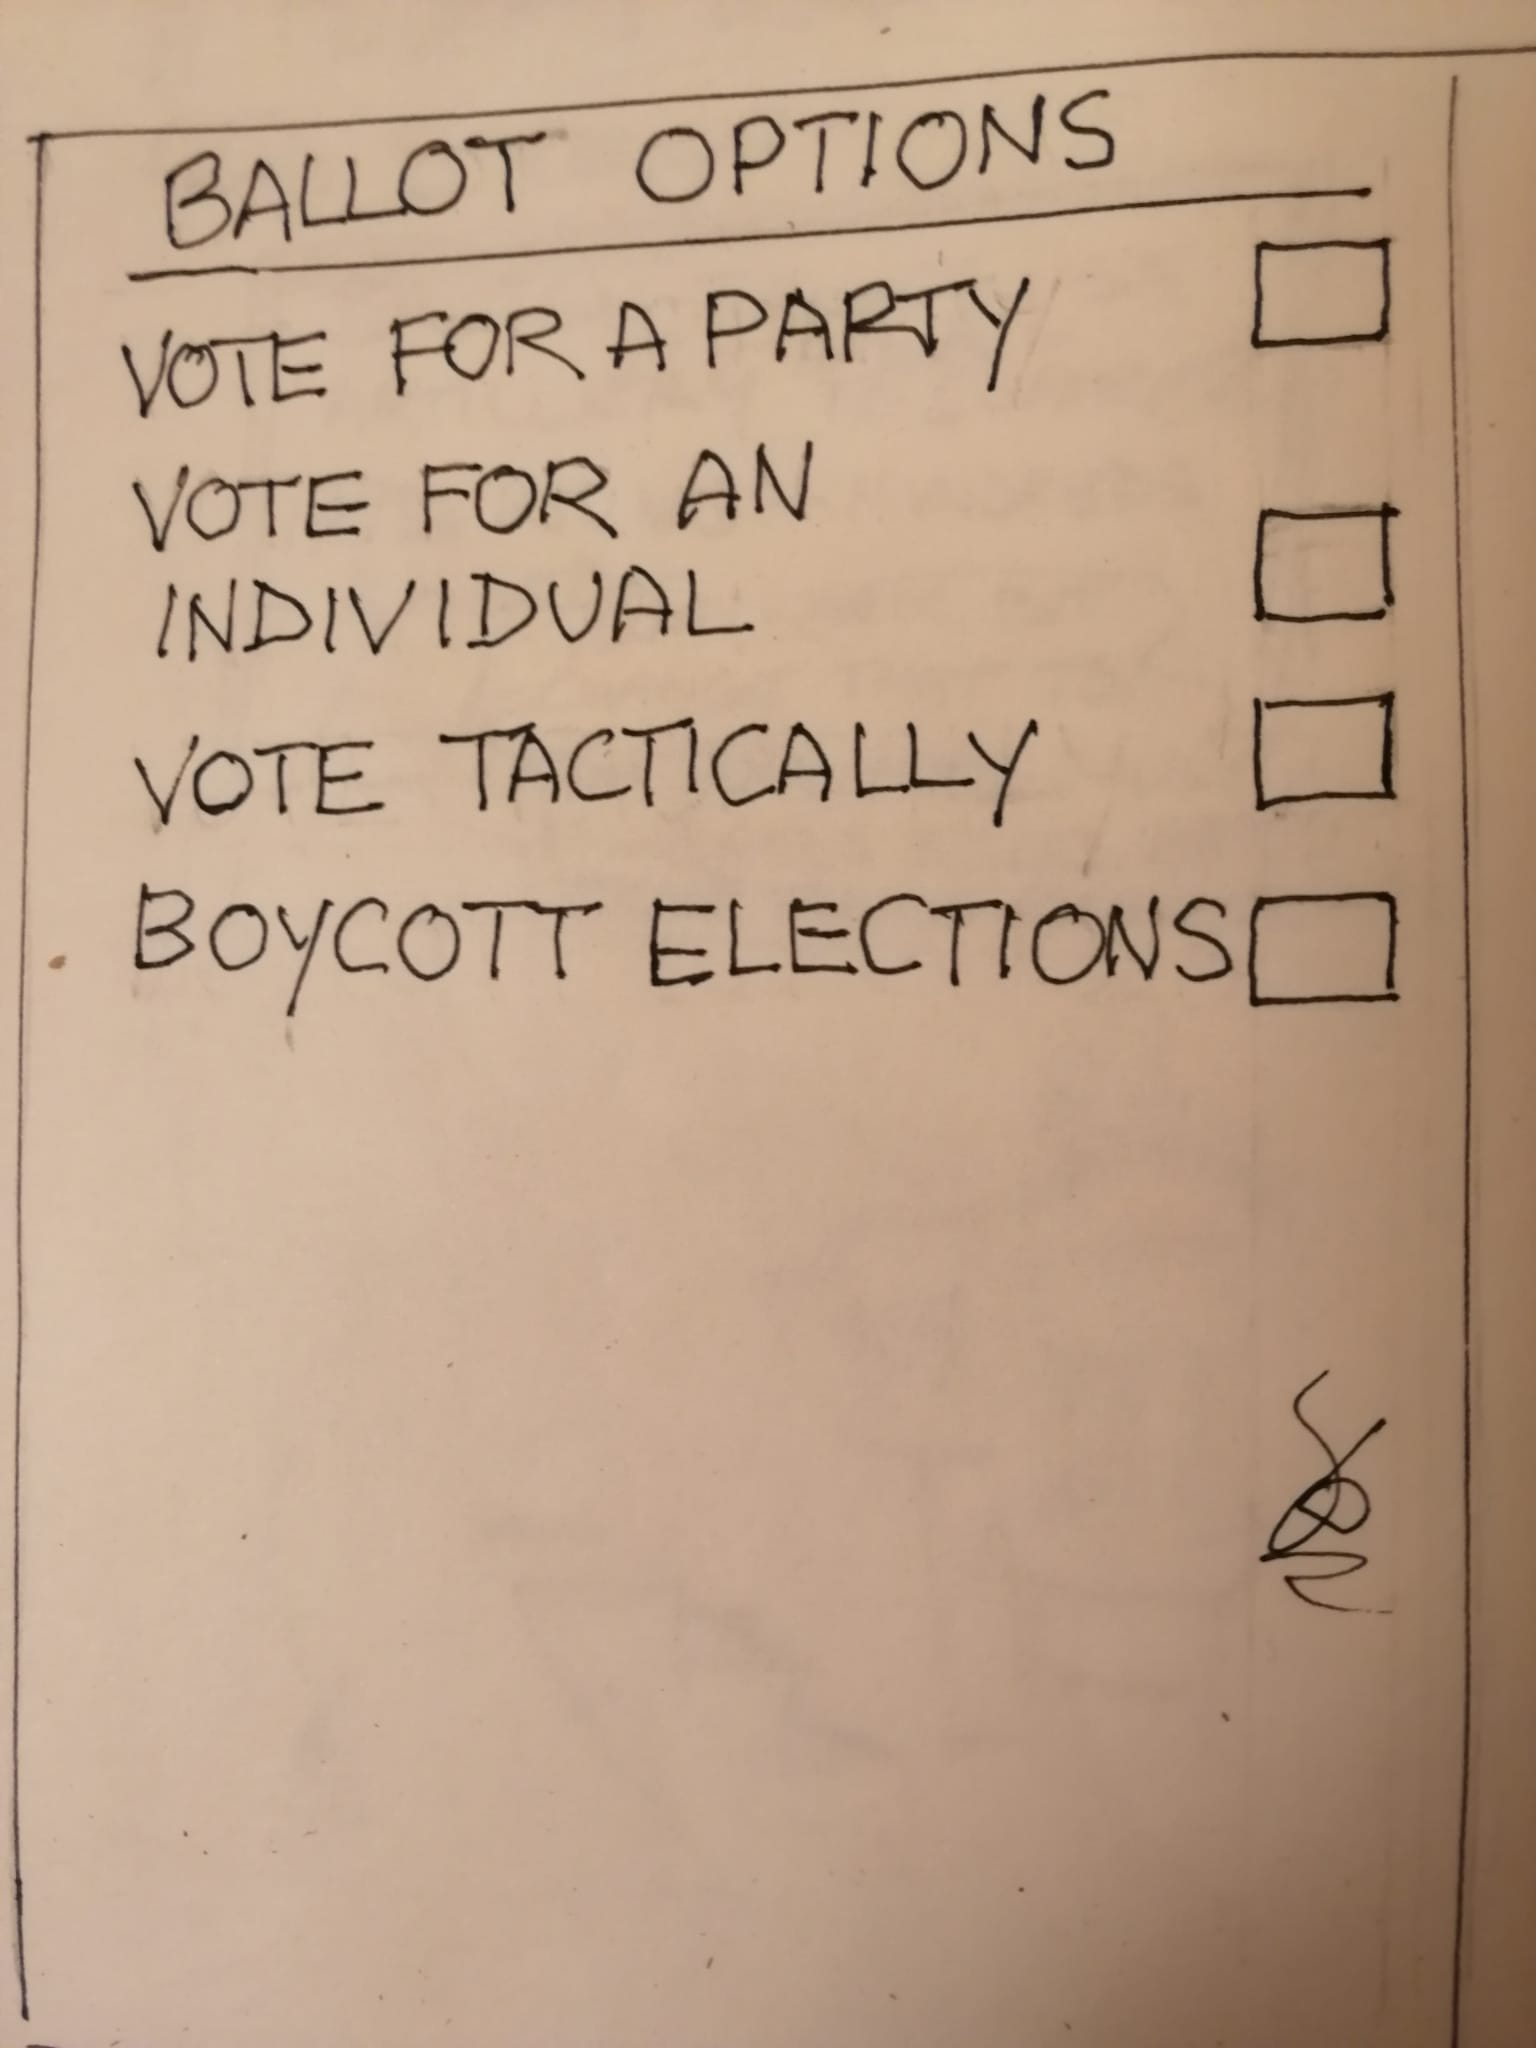 BALLOT OPTIONS
VOTE FOR A PARTY
VOTE FOR AN
INDIVIDUAL
VOTE TACTICALLY
BOYCOTT ELECTIONS